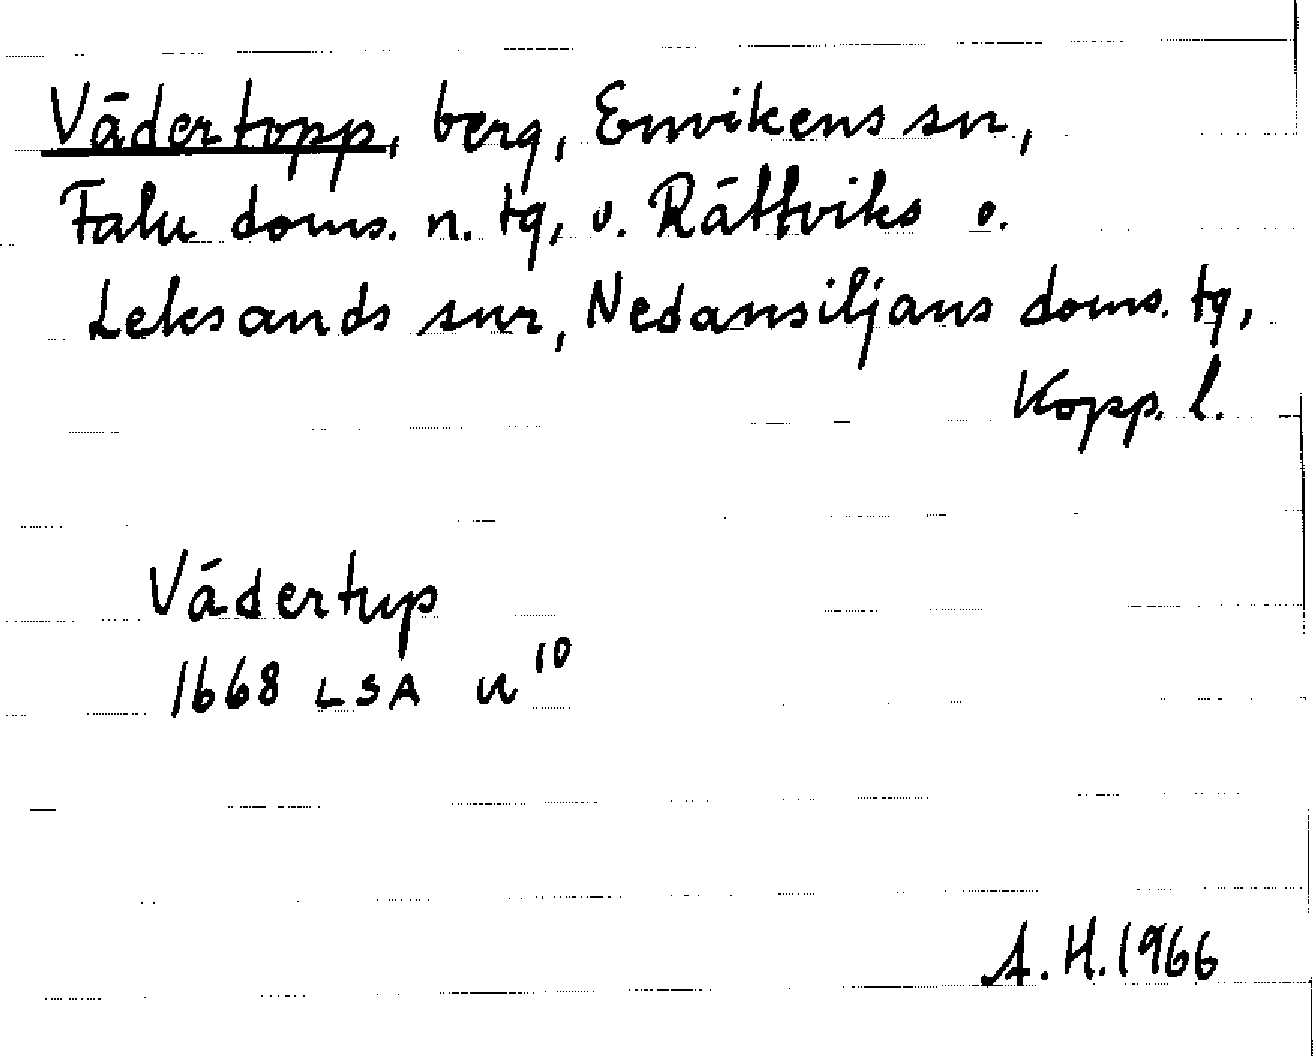 Vädertopp, berg, Envikens sn,
Falu doms. n. tg, o. Rättviks o.
Leksands snr, Nedansiljans doms. tg,
Kopp. l.
Vädertup
1668 LSA u¹⁰
A. H. 1966